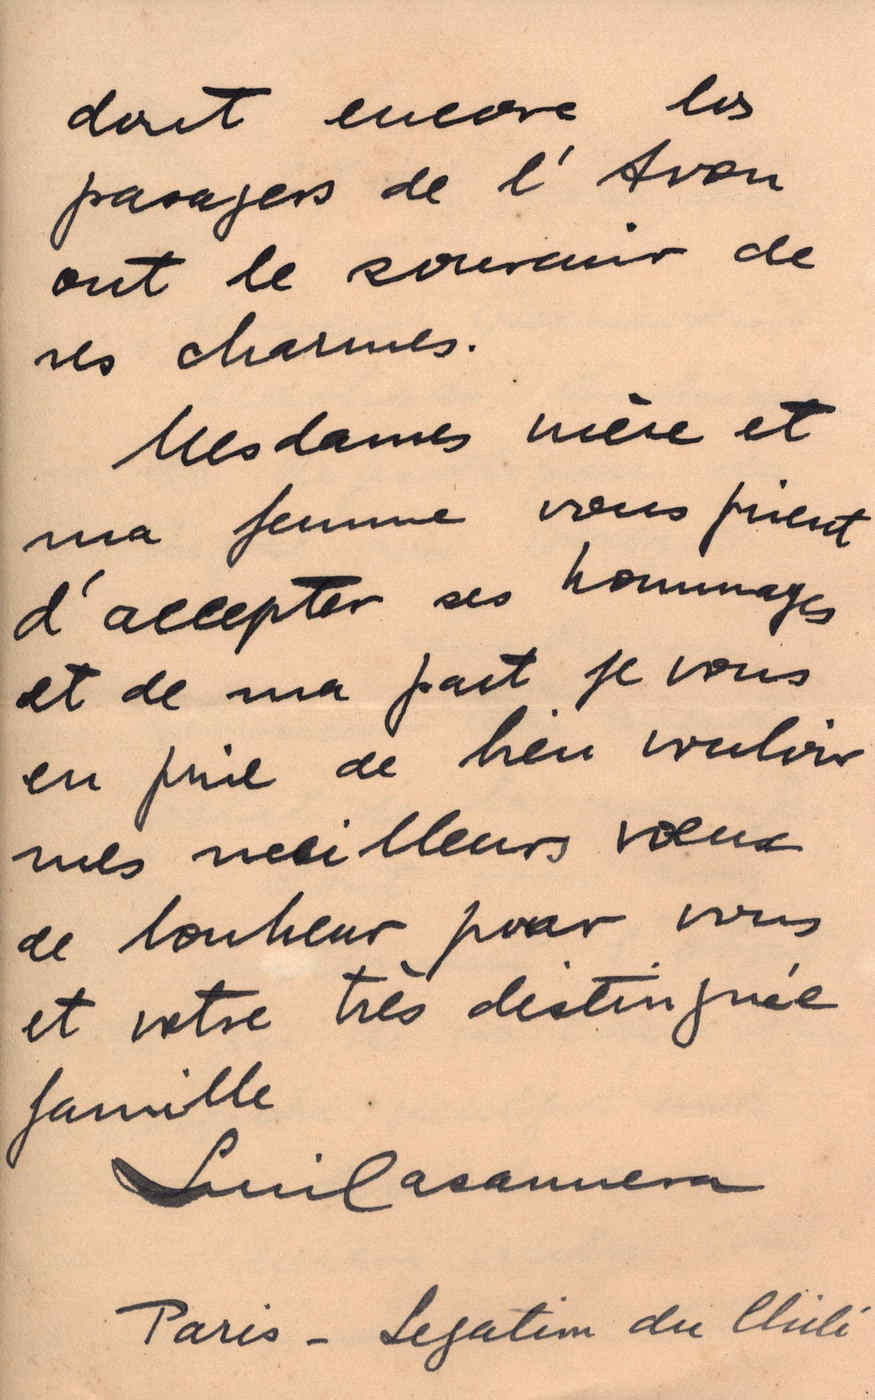 dont encore los
pasagers de l'Avon
ont le souvenir de
ses charmes.
Mesdames mère et
ma femme vous prient
d'accepter ses hommages
et de ma part je vous
en prie de bien vouloir
mes meilleurs vœux
de bonheur pour vous
et votre très distinguée
famille
Luis Casanueva
Paris - Legation du Chili